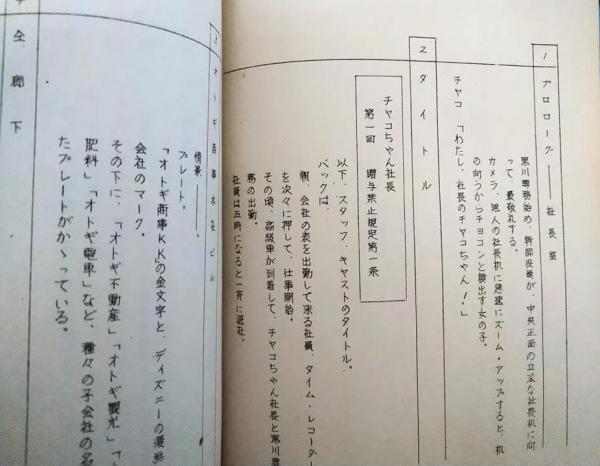 1 プロローグ——社長室
黒川専務始め、幹部役員が、中央正面の立派な社長机に向
って、最敬礼する。
カメラ、無人の社長机に急速にズーム・アップすると、机
の向うからチョコンと顔出す女の子。
チャコ「わたし、社長のチャコちゃん！」
2 タイトル
チャコちゃん社長
第一回 贈与禁止規定第一条
以下、スタッフ、キャストのタイトル。
バックは、
朝、会社の表を出勤して来る社員、タイム・レコーダー
を次々に押して、仕事開始。
その頃、高級車が到着して、チャコちゃん社長と黒川専
務の出勤。
社員は五時になると一斉に退社。
3 オトギ商事本社ビル
情景——
プレート。
「オトギ商事KKの金文字と、ディズニーの漫画
会社のマーク。
その下に、「オトギ不動産」「オトギ観光」「
肥料」「オトギ電車」など、種々の子会社の名
たプレートがかゝっている。
全 廊下